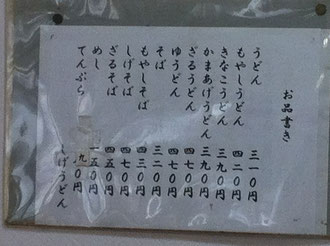 お品書き
うどん 三一〇円
もやしうどん 四二〇円
きなこうどん 三九〇円
かまあげうどん 三九〇円
ざるうどん 四七〇円
ゆうどん 四七〇円
そば 三二〇円
もやしそば 四三〇円
しげそば 四七〇円
ざるそば 四五〇円
めし 一五〇円
てんぷら 九〇円
しげうどん